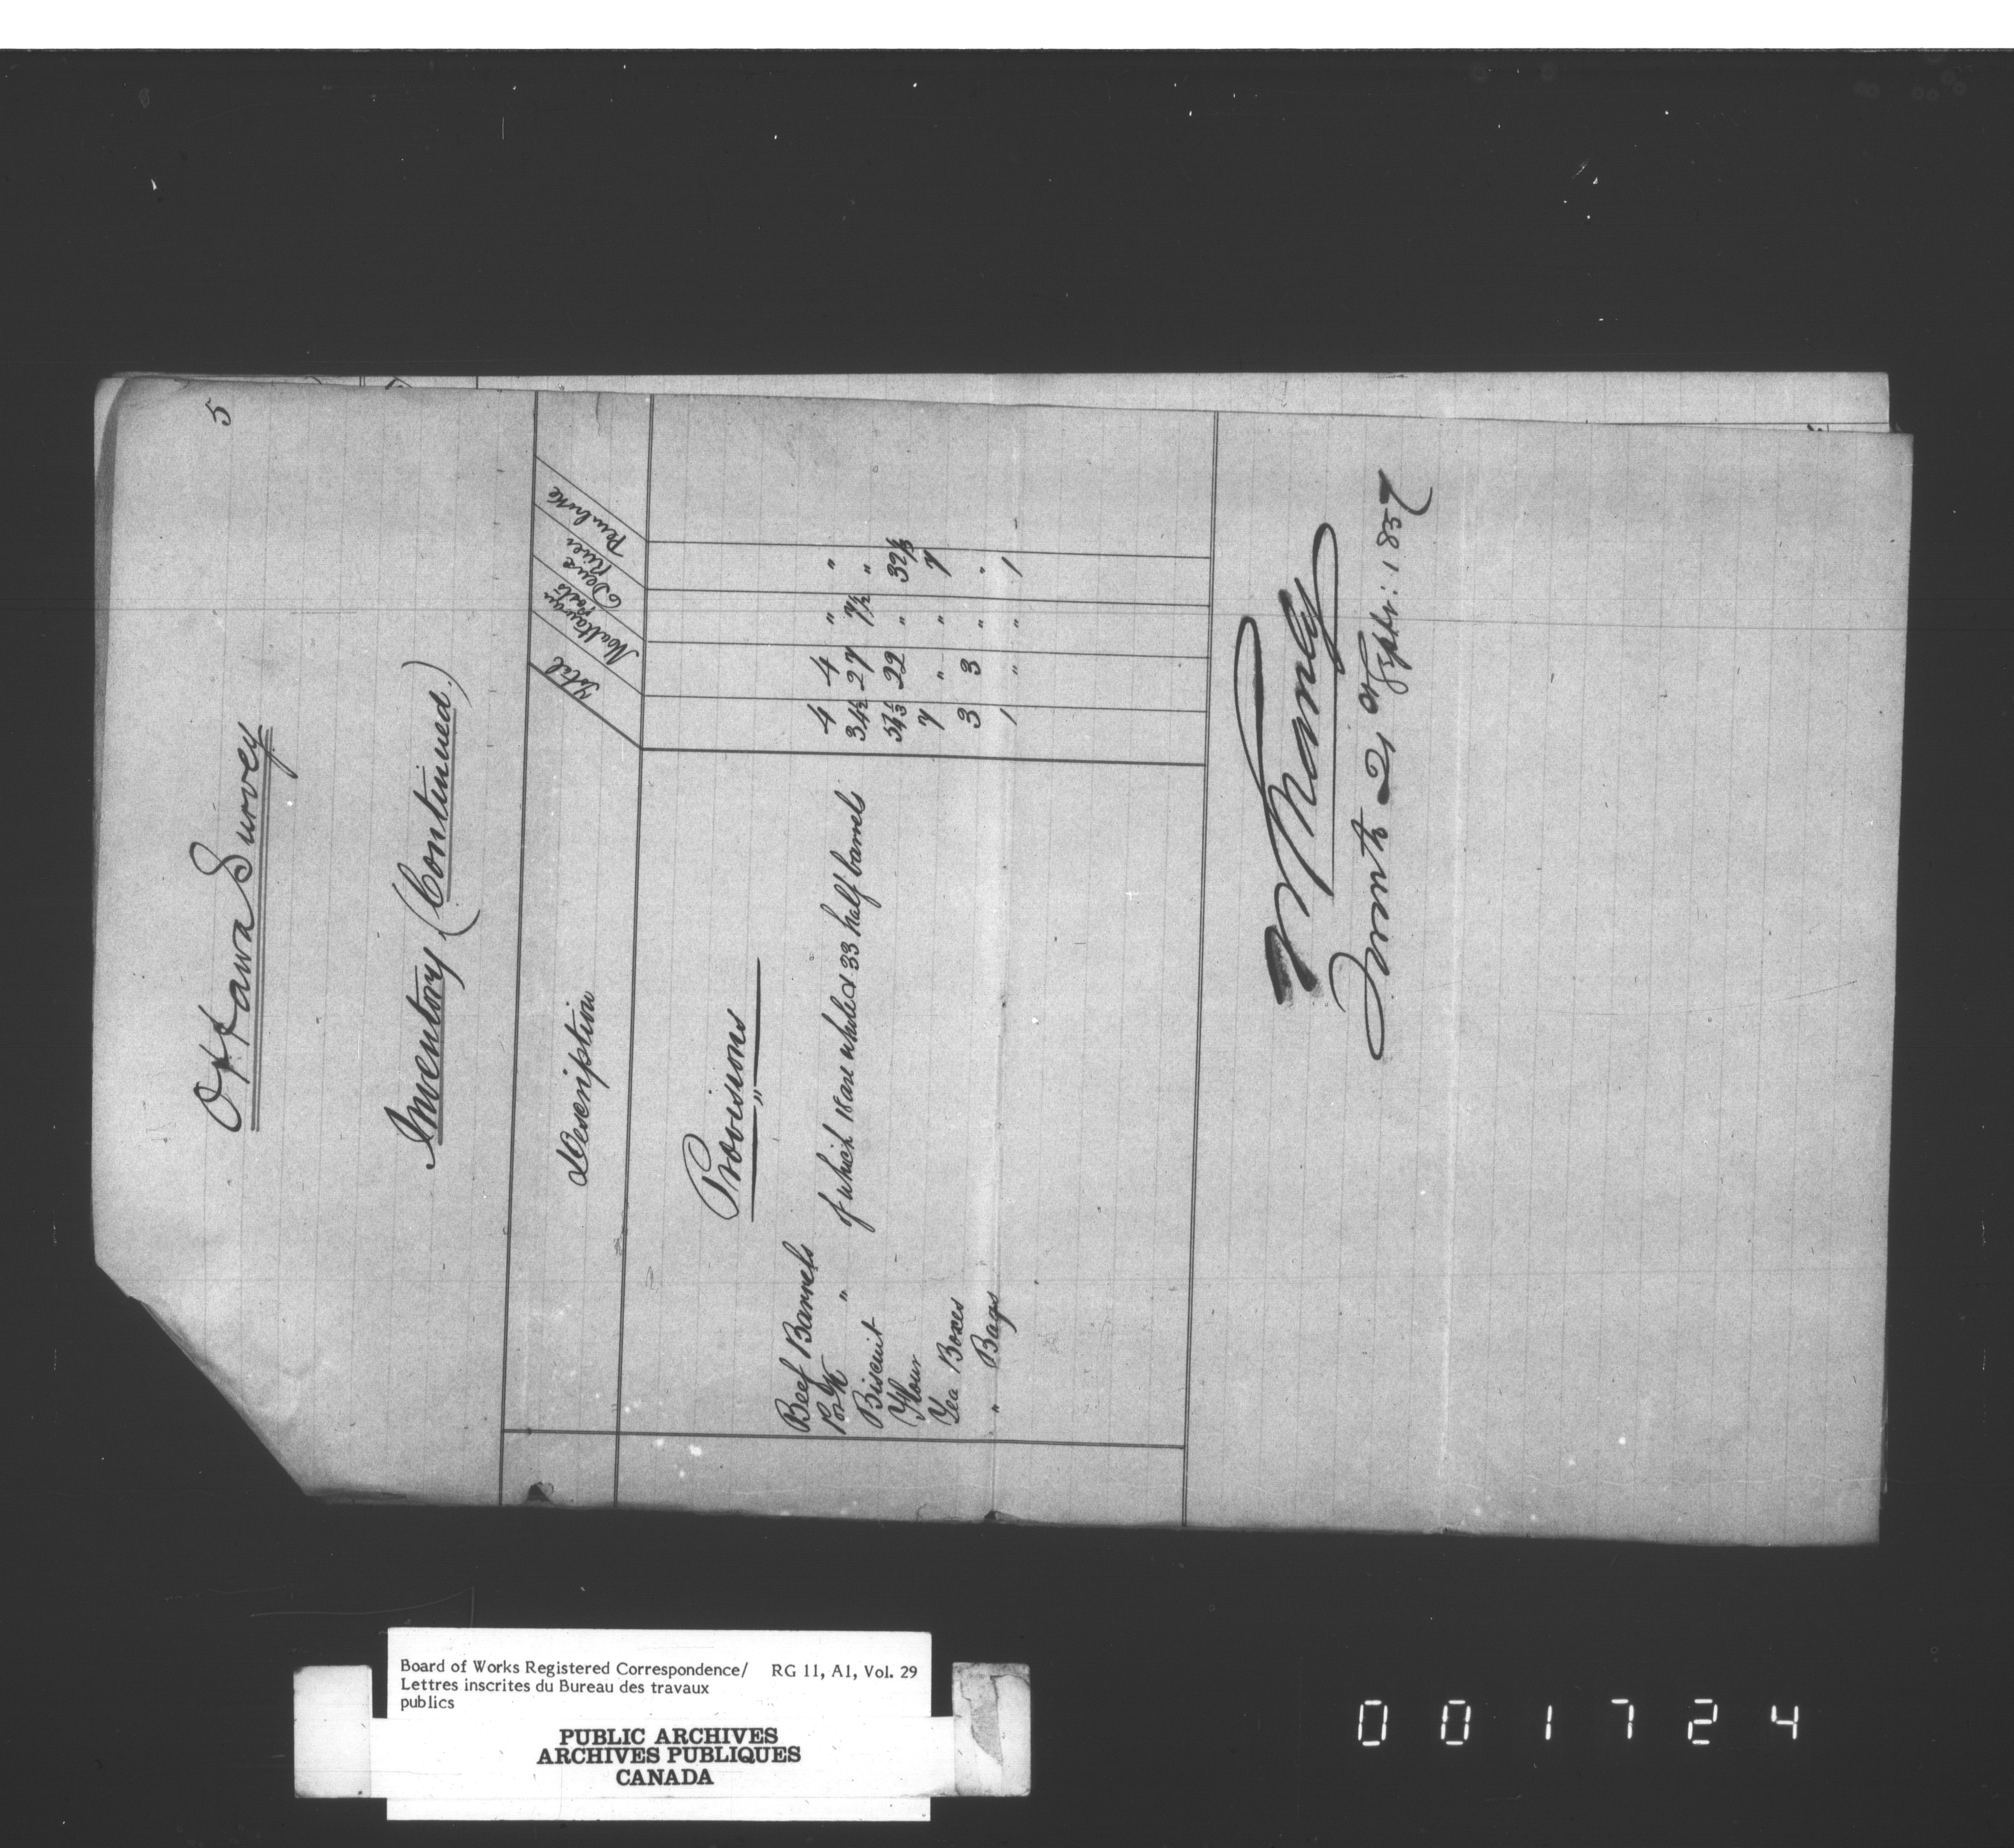 5
Ottawa Survey
Inventory (Continued.)
Description Total Mattawan Posts Deux River Pembroke
Provisions
"
Beef Barrels 4 4 " "
Pork " of which 18 are whole & 33 half barrels 34½ 27 7½ "
Biscuit 54⅓ 22 " 32⅓
Flour 7 " " 7
Tea Boxes 3 3 " "
" Bags 1 " " 1
Manly
Toronto 21 of Septr: 1857
Board of Works Registered Correspondence/ RG 11, A1, Vol. 29
Lettres inscrites du Bureau des travaux
publics
PUBLIC ARCHIVES
ARCHIVES PUBLIQUES
CANADA
001724